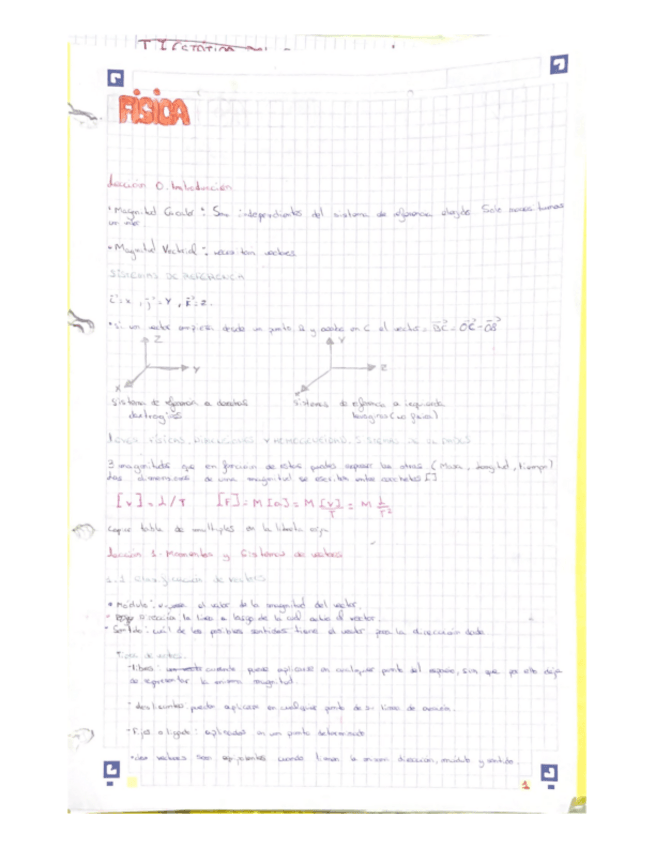 FÍSICA
Lección 0. Introducción
• Magnitud Escalar: Son independientes del sistema de referencia elegido. Solo
• Magnitud Vectorial:
SISTEMAS DE REFERENCIA
i = x, j = Y, k = Z.
• Si un vector empieza desde un punto B y acaba en C el vector = BC = OC - OB
Z Y
Y Z
X
Sistema de referencia a derechas Sistema de referencia a izquierda
3 magnitudes que en función de estas puedes expresar las otras (Masa, longitud, tiempo)
Las dimensiones de una magnitud se escribe entre corchetes []
[v] = L/T [F] = M [a] = M [v]/T = M L/T²
Copiar tabla de multiplos de la libreta
Lección 1. Momentos y Sistemas de vectores
• Módulo: expresa el valor de la magnitud del vector.
Dirección la línea a largo de la cual actúa el vector.
• Sentido: cuál de los posibles sentidos tiene el vector para la dirección dada
Tipos de vectores
- Libres: puede aplicarse en cualquier punto del espacio, sin que por ello deje
de representar la misma magnitud.
- deslizantes pueden aplicarse en cualquier punto de su línea de
- Fijos o ligados: aplicados en un punto determinado
• dos vectores son equipolentes cuando tienen la misma dirección, módulo y sentido.
1